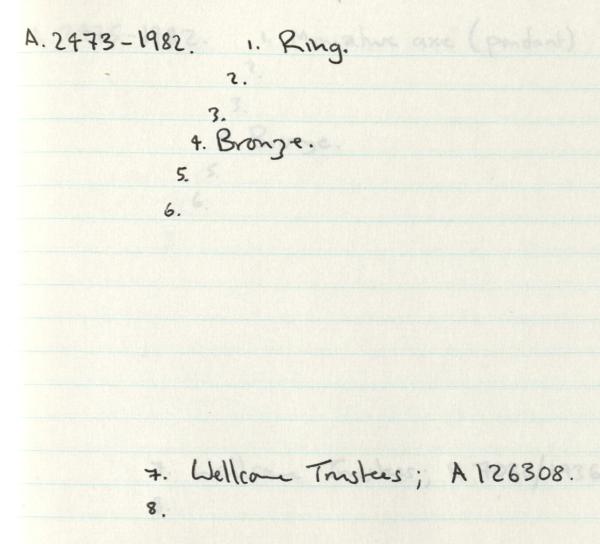 A. 2473-1982. 1. Ring.
2.
3.
4. Bronze.
5.
6.
7. Wellcome Trustees; A 126308.
8.